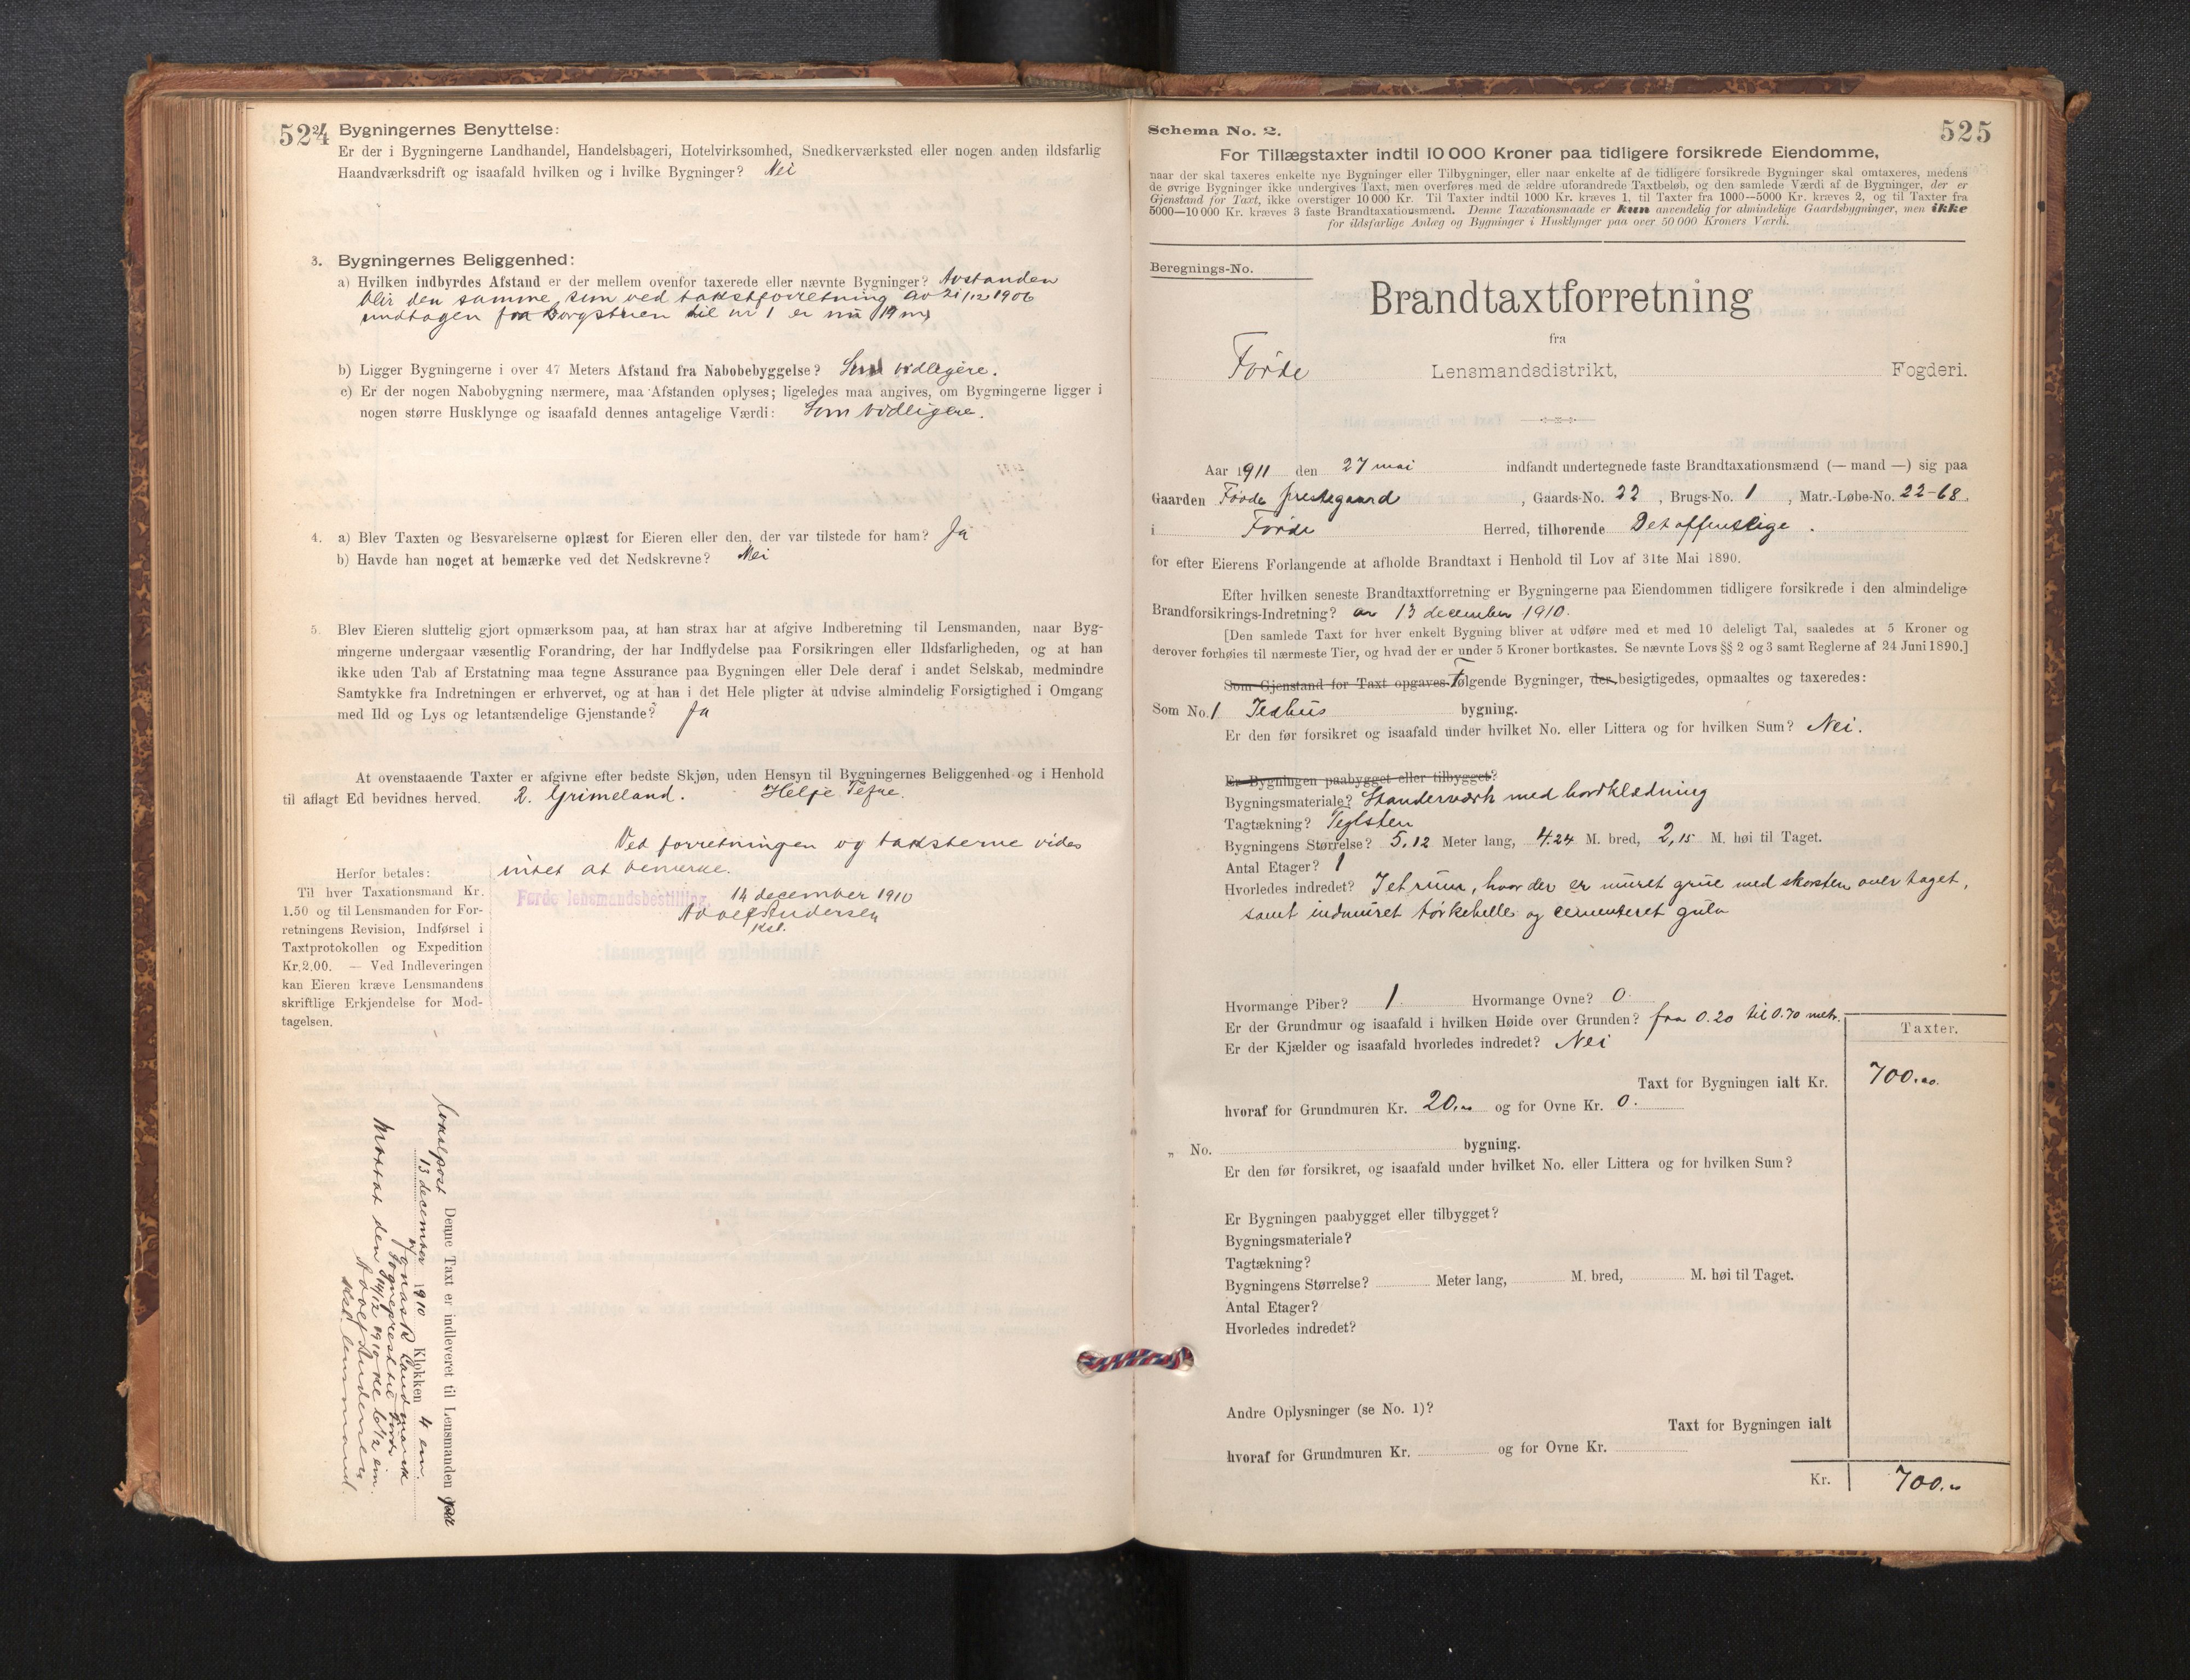 524
Bygningernes Benyttelse:
Er der i Bygningerne Landhandel, Handelsbageri, Hotelvirksomhed, Snedkerværksted eller nogen anden ildsfarlig
Haandværksdrift og isaafald hvilken og i hvilke Bygninger? Nei
3. Bygningernes Beliggenhed:
a) Hvilken indbyrdes Afstand er der mellem ovenfor taxerede eller nævnte Bygninger? Avstanden
blir den samme som ved takstforretning av 21/12 1906
undtagen fra borgstuen til nr 1 er nu 19 m
b) Ligger Bygningerne i over 47 Meters Afstand fra Nabobebyggelse? Som vidligere.
c) Er der nogen Nabobygning nærmere, maa Afstanden oplyses; ligeledes maa angives, om Bygningerne ligger i
nogen større Husklynge og isaafald dennes antagelige Værdi: Som vidligere.
4. a) Blev Taxten og Besvarelserne oplæst for Eieren eller den, der var tilstede for ham? Ja
b) Havde han noget at bemærke ved det Nedskrevne? Nei
5. Blev Eieren sluttelig gjort opmærksom paa, at han strax har at afgive Indberetning til Lensmanden, naar Byg-
ningerne undergaar væsentlig Forandring, der har Indflydelse paa Forsikringen eller Ildsfarligheden, og at han
ikke uden Tab af Erstatning maa tegne Assurance paa Bygningen eller Dele deraf i andet Selskab, medmindre
Samtykke fra Indretningen er erhvervet, og at han i det Hele pligter at udvise almindelig Forsigtighed i Omgang
med Ild og Lys og letantændelige Gjenstande? Ja
At ovenstaaende Taxter er afgivne efter bedste Skjøn, uden Hensyn til Bygningernes Beliggenhed og i Henhold
til aflagt Ed bevidnes herved. R. Grimeland. Helje Tefre.
Ved forretningen og taksterne vides
intet at bemerke.
Førde lensmandsbestilling, 14 december 1910
Adolf Andersen
kst.
Herfor betales:
Til hver Taxationsmand Kr.
1.50 og til Lensmanden for For-
retningens Revision, Indførsel i
Taxtprotokollen og Expedition
Kr. 2.00. — Ved Indleveringen
kan Eieren kræve Lensmandens
skriftlige Erkjendelse for Mod-
tagelsen.
Denne Taxt er indleveret til Lensmanden
13 december 1910 Klokken 4 em.
af Jonas R Landmark
sogneprest til Førde
Mottat den 14/12 1910 kl 6 1/2 em.
Adolf Andersen
kst. lensmand.
Schema No. 2.
525
For Tillægstaxter indtil 10 000 Kroner paa tidligere forsikrede Eiendomme,
naar der skal taxeres enkelte nye Bygninger eller Tilbygninger, eller naar enkelte af de tidligere forsikrede Bygninger skal omtaxeres, medens
de øvrige Bygninger ikke undergives Taxt, men overføres med de ældre uforandrede Taxtbeløb, og den samlede Værdi af de Bygninger, der er
Gjenstand for Taxt, ikke overstiger 10 000 Kr. Til Taxter indtil 1000 Kr. kræves 1, til Taxter fra 1000—5000 Kr. kræves 2, og til Taxter fra
5000—10 000 Kr. kræves 3 faste Brandtaxationsmænd. Denne Taxationsmaade er kun anvendelig for almindelige Gaardsbygninger, men ikke
for ildsfarlige Anlæg og Bygninger i Husklynger paa over 50 000 Kroners Værdi.
Beregnings-No.
Brandtaxtforretning
fra
Førde Lensmandsdistrikt, Fogderi.
Aar 1911 den 27 mai indfandt undertegnede faste Brandtaxationsmænd (— mand —) sig paa
Gaarden Førde prestegaard, Gaards-No. 22, Brugs-No. 1, Matr.-Løbe-No. 22-68.
i Førde Herred, tilhørende Det offentlige.
for efter Eierens Forlangende at afholde Brandtaxt i Henhold til Lov af 31te Mai 1890.
Efter hvilken seneste Brandtaxtforretning er Bygningerne paa Eiendommen tidligere forsikrede i den almindelige
Brandforsikrings-Indretning? av 13 december 1910.
[Den samlede Taxt for hver enkelt Bygning bliver at udføre med et med 10 deleligt Tal, saaledes at 5 Kroner og
derover forhøies til nærmeste Tier, og hvad der er under 5 Kroner bortkastes. Se nævnte Lovs §§ 2 og 3 samt Reglerne af 24 Juni 1890.]
Som Gjenstand for Taxt opgaves Følgende Bygninger, der besigtigedes, opmaaltes og taxeredes:
Som No. 1 Ildhus bygning.
Er den før forsikret og isaafald under hvilket No. eller Littera og for hvilken Sum? Nei.
Er Bygningen paabygget eller tilbygget?
Bygningsmateriale? Standerværk med bordklædning
Tagtækning? Teglsten
Bygningens Størrelse? 5,12 Meter lang, 4.24 M. bred, 2,15 M. høi til Taget.
Antal Etager? 1
Hvorledes indredet? I et rum, hvor der er muret grue med skorsten over taget,
samt indmuret tørkehelle og cementeret gulv
Hvormange Piber? 1. Hvormange Ovne? 0.
Er der Grundmur og isaafald i hvilken Høide over Grunden? fra 0.20 til 0.70 metr.
Er der Kjælder og isaafald hvorledes indredet? Nei
Taxter.
Taxt for Bygningen ialt Kr. 700.00.
hvoraf for Grundmuren Kr. 20.00 og for Ovne Kr. 0.
„ No. bygning.
Er den før forsikret, og isaafald under hvilket No. eller Littera og for hvilken Sum?
Er Bygningen paabygget eller tilbygget?
Bygningsmateriale?
Tagtækning?
Bygningens Størrelse? Meter lang, M. bred, M. høi til Taget.
Antal Etager?
Hvorledes indredet?
Andre Oplysninger (se No. 1)?
Taxt for Bygningen ialt
hvoraf for Grundmuren Kr. og for Ovne Kr.
Kr. 700.00